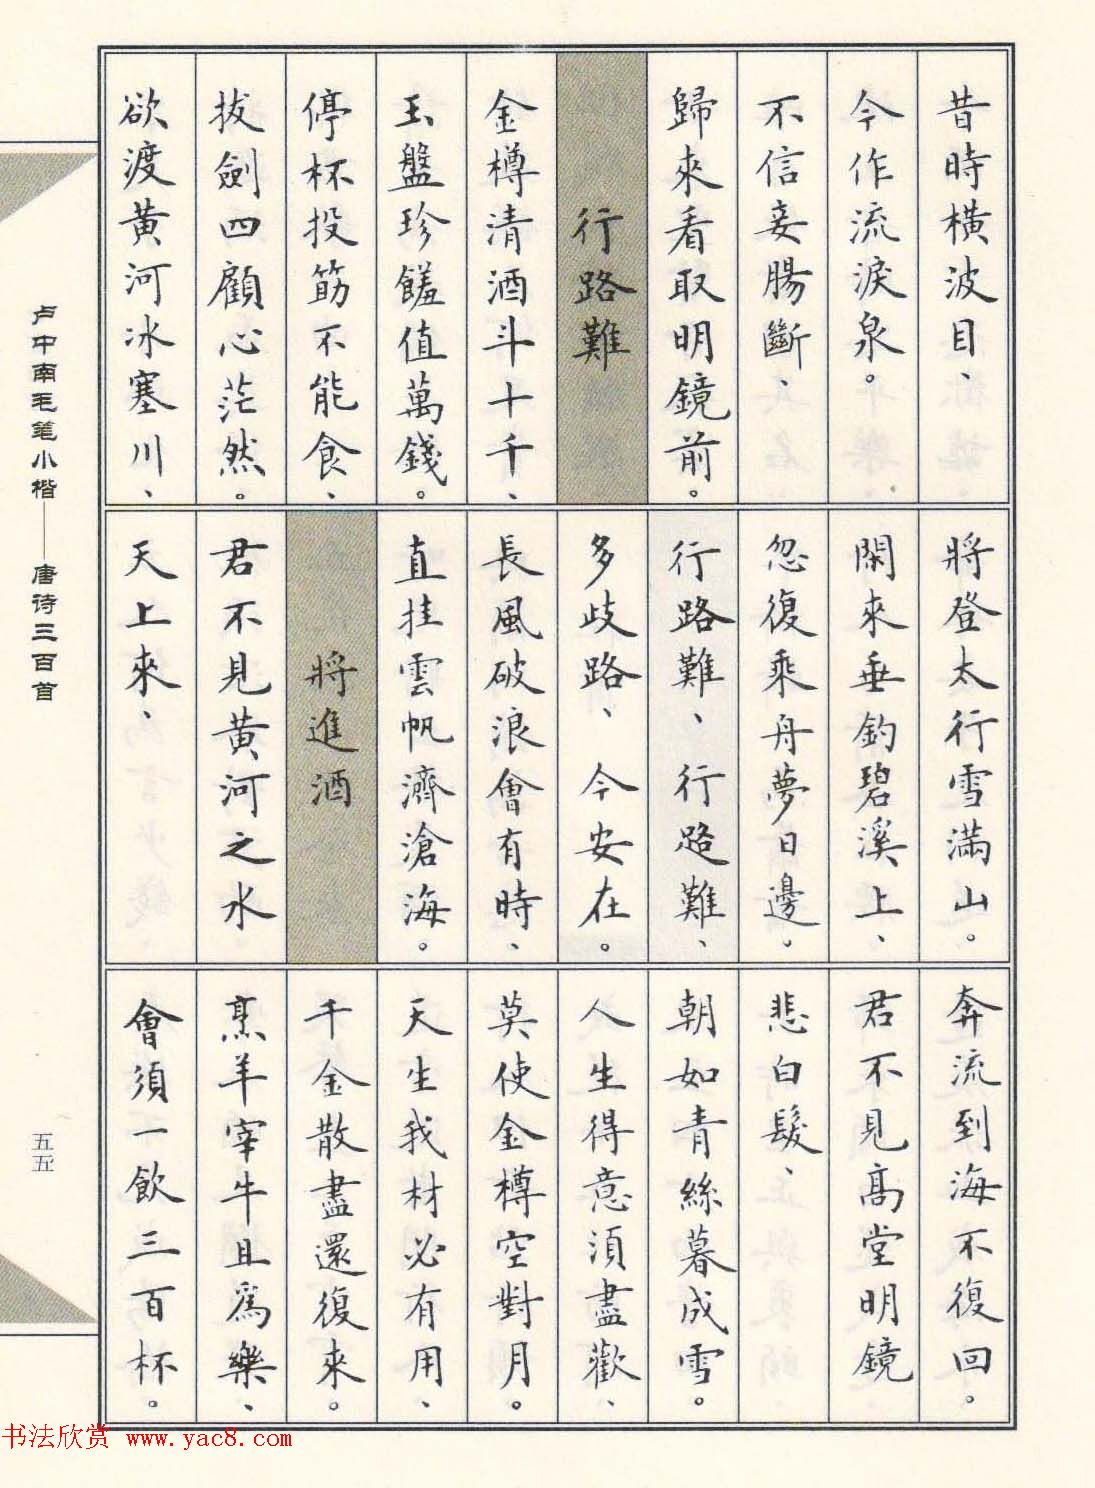 昔時橫波目、
今作流淚泉。
不信妾腸斷、
歸來看取明鏡前。
行路難
金樽清酒斗十千、
玉盤珍饈值萬錢。
停杯投筯不能食、
拔劍四顧心茫然。
欲渡黃河冰塞川、
將登太行雪滿山。
閑來垂釣碧溪上、
忽復乘舟夢日邊。
行路難、行路難、
多歧路、今安在。
長風破浪會有時、
直挂雲帆濟滄海。
將進酒
君不見黃河之水
天上來、
奔流到海不復回。
君不見高堂明鏡
悲白髮、
朝如青絲暮成雪。
人生得意須盡歡、
莫使金樽空對月。
天生我材必有用、
千金散盡還復來。
烹羊宰牛且爲樂、
會須一飲三百杯。
卢中南毛笔小楷——唐诗三百首
五五
书法欣赏 www.yac8.com